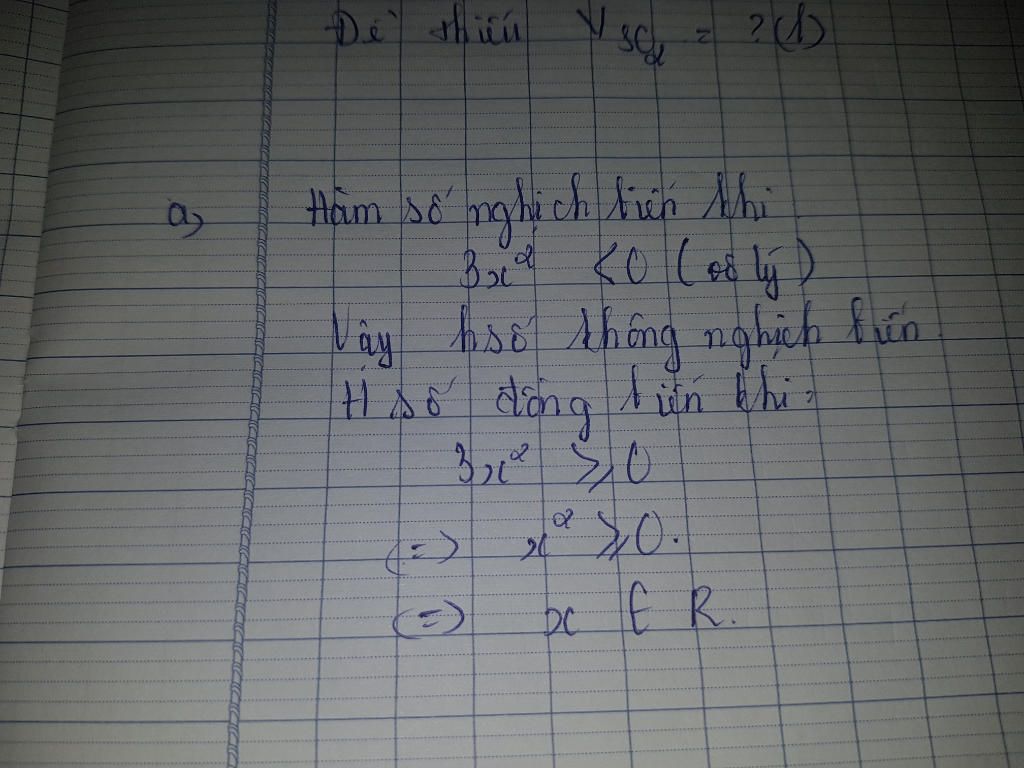 Đề thiếu V SO₂ = ? (l)
a, Hàm số nghịch biến khi
3x² < 0 (vô lý)
Vậy hsố không nghịch biến.
H số đồng biến khi:
3x² ⩾ 0
(=) x² ⩾ 0.
(=) x ∈ R.